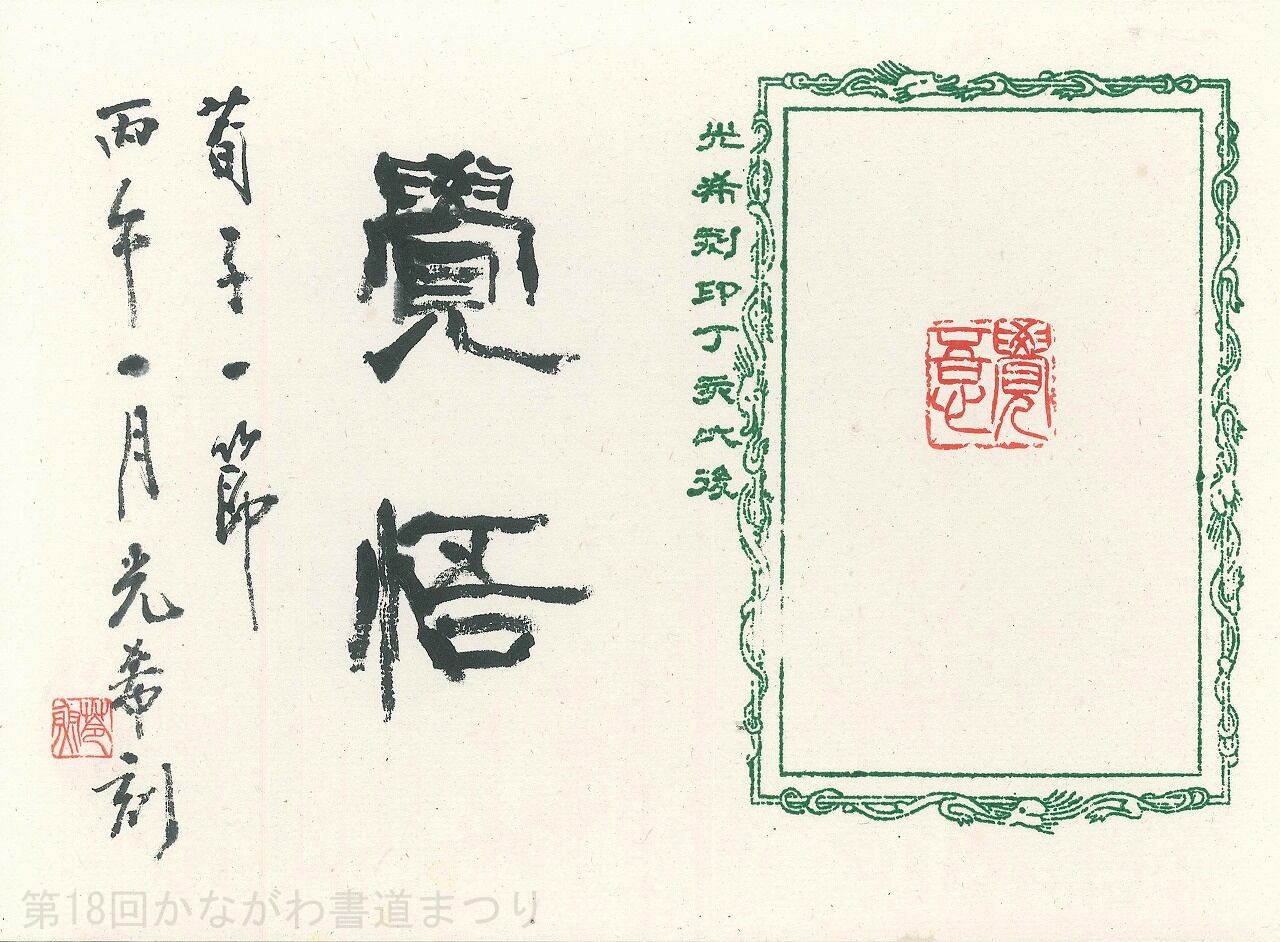 光希刻印丁亥以後
覺悟
荀子一節
丙午一月光希刻
第18回かながわ書道まつり